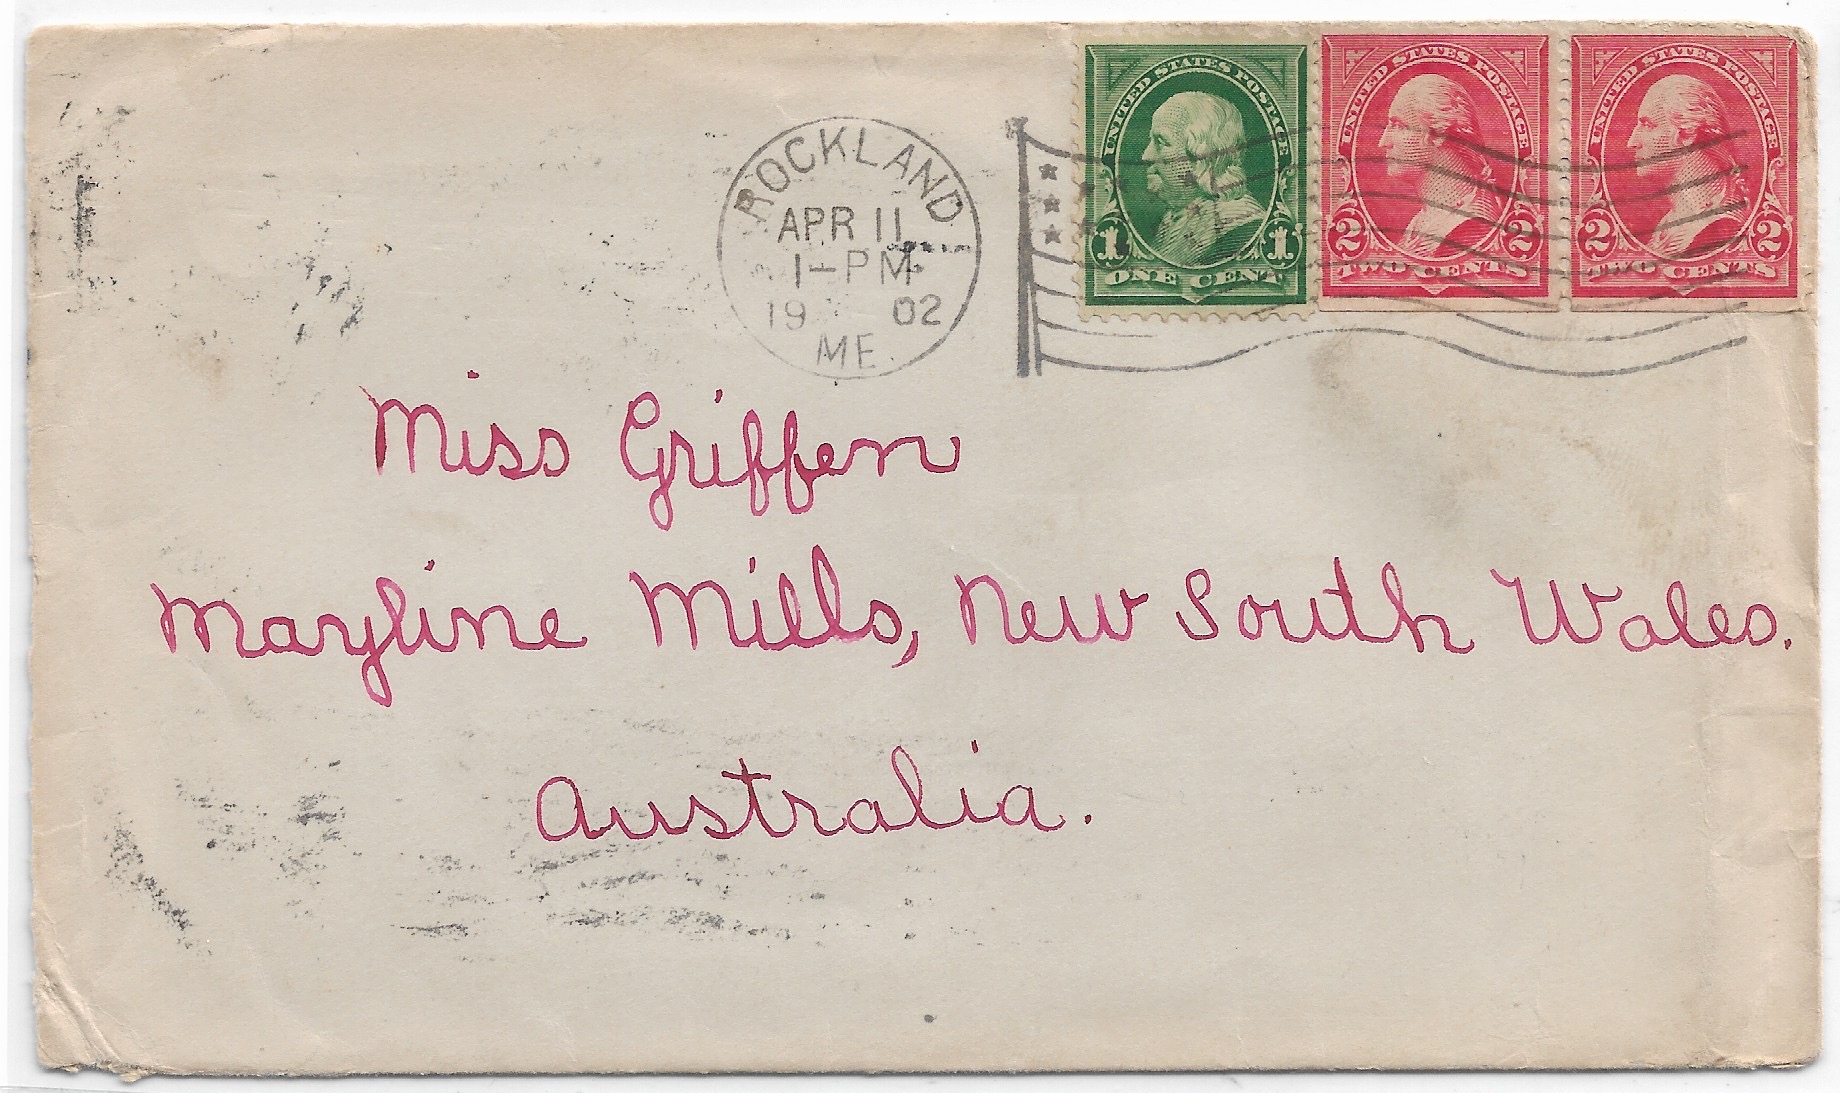 UNITED STATES POSTAGE
1 1
ONE CENT
UNITED STATES POSTAGE
2 2
TWO CENTS
UNITED STATES POSTAGE
2 2
TWO CENTS
ROCKLAND
APR 11
1-PM
19 02
ME.
Miss Griffen
Mayline Mills, New South Wales.
Australia.